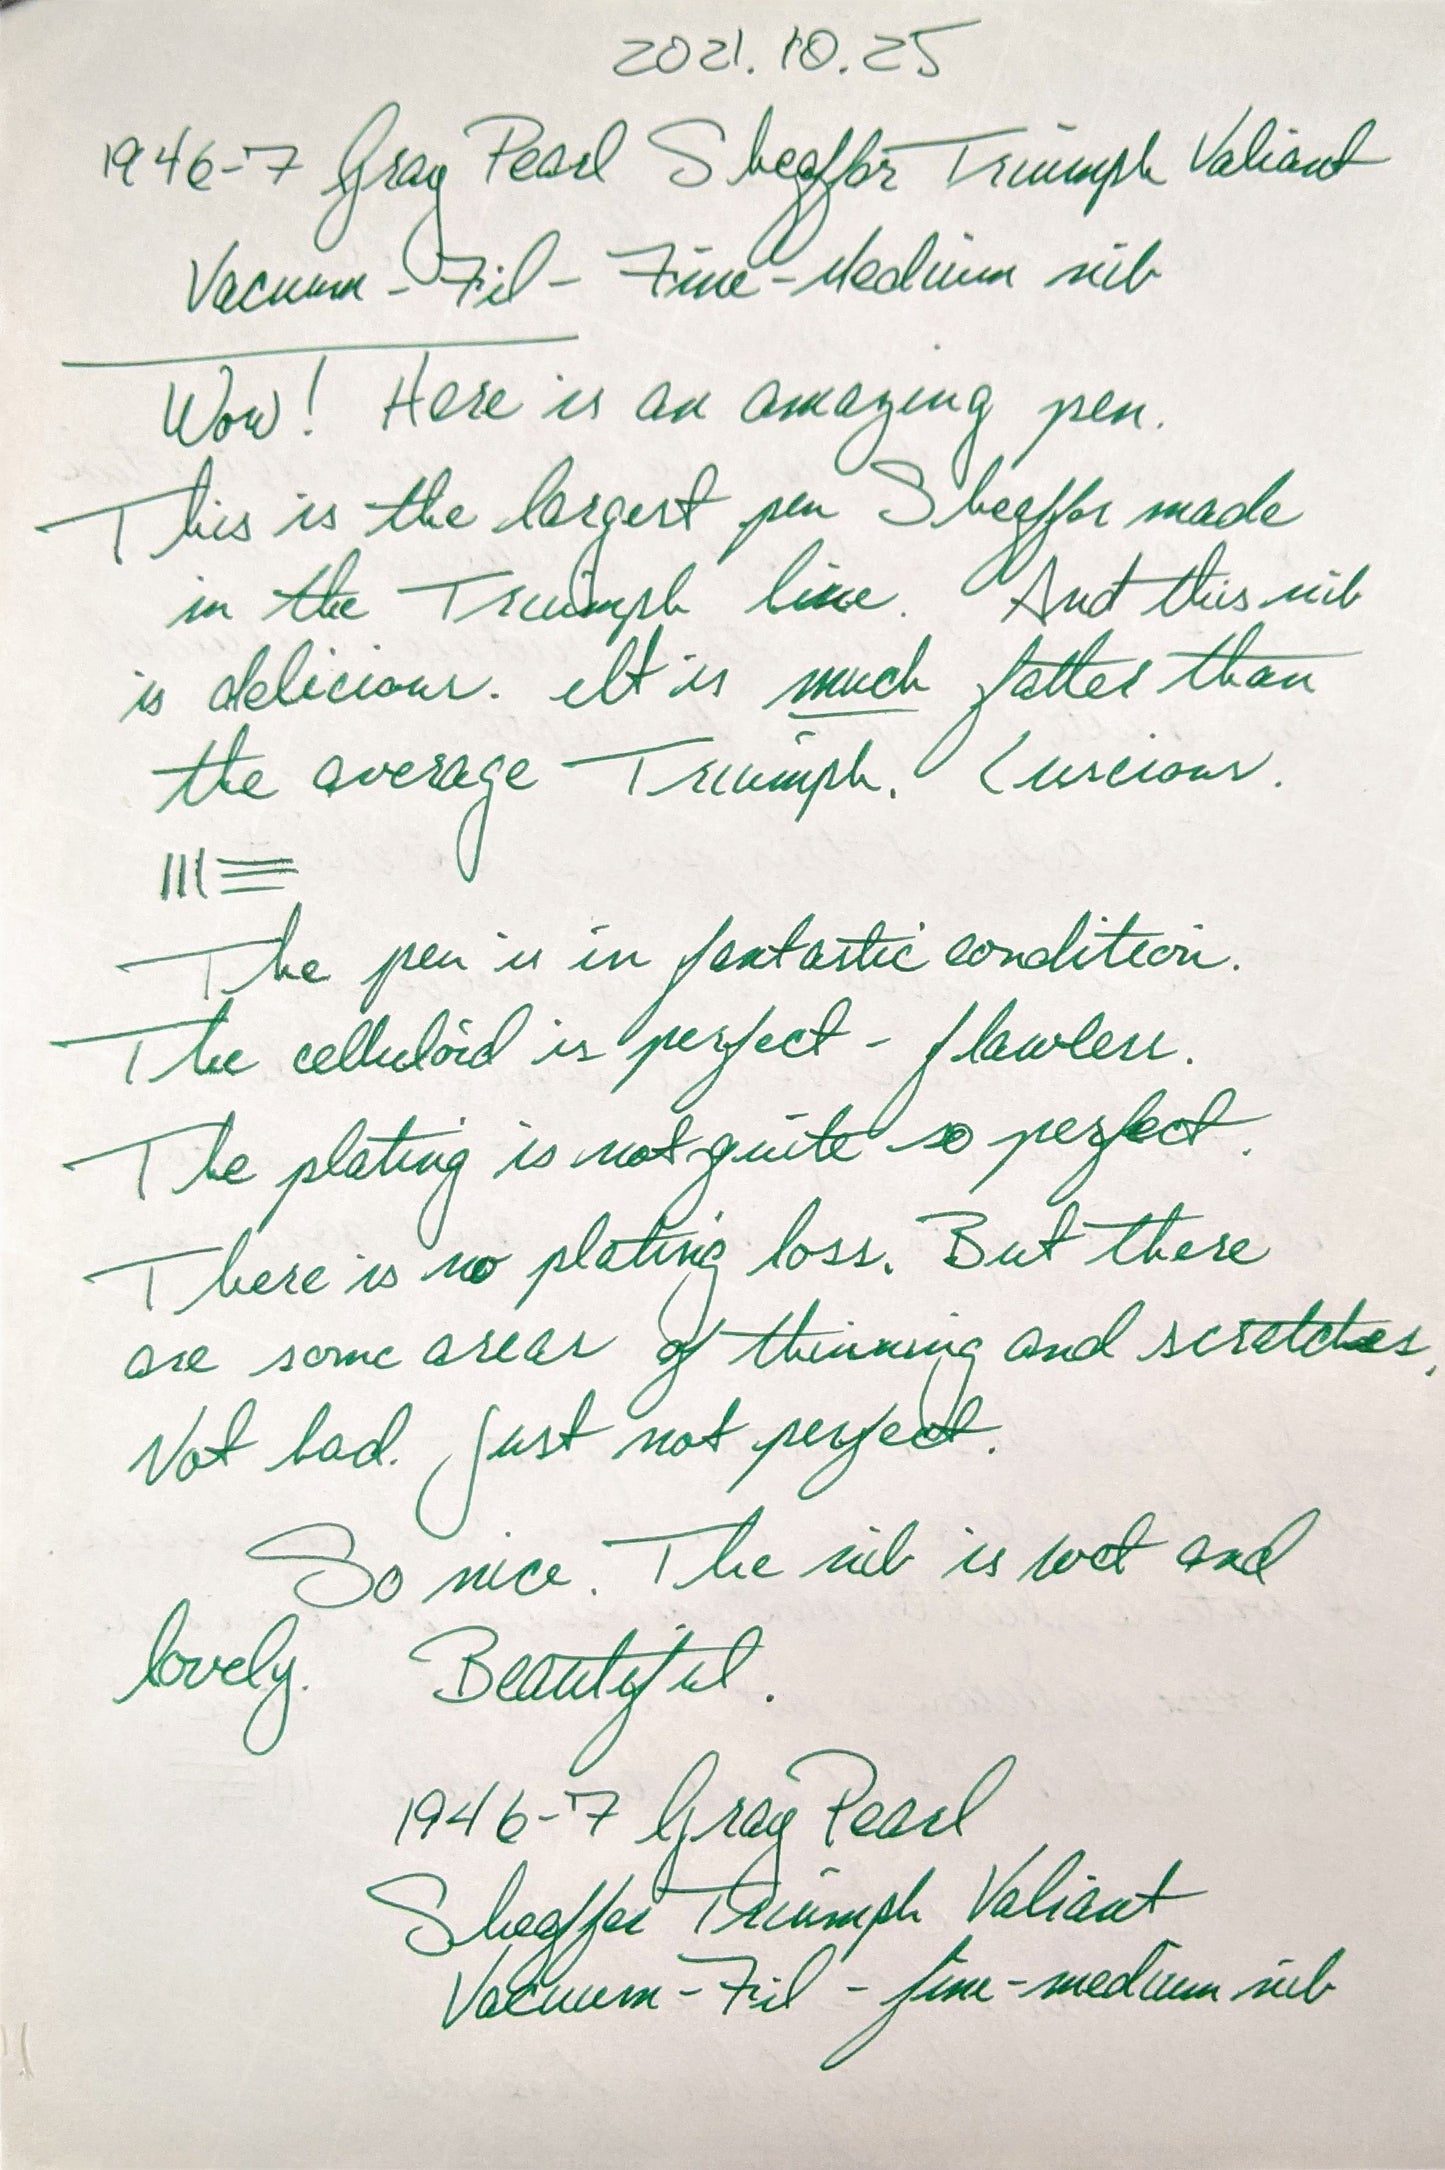 2021.10.25
1946-7 Gray Pearl Sheaffer Triumph Valiant
Vacuum-Fil - Fine-Medium nib
Wow! Here is an amazing pen.
This is the largest pen Sheaffer made
in the Triumph line. And this nib
is delicious. It is much fatter than
the average Triumph. Luscious.
The pen is in fantastic condition.
The celluloid is perfect - flawless.
The plating is not quite so perfect.
There is no plating loss. But there
are some areas of thinning and scratches.
Not bad. Just not perfect.
So nice. The nib is wet and
lovely. Beautiful.
1946-7 Gray Pearl
Sheaffer Triumph Valiant
Vacuum-Fil - fine-medium nib